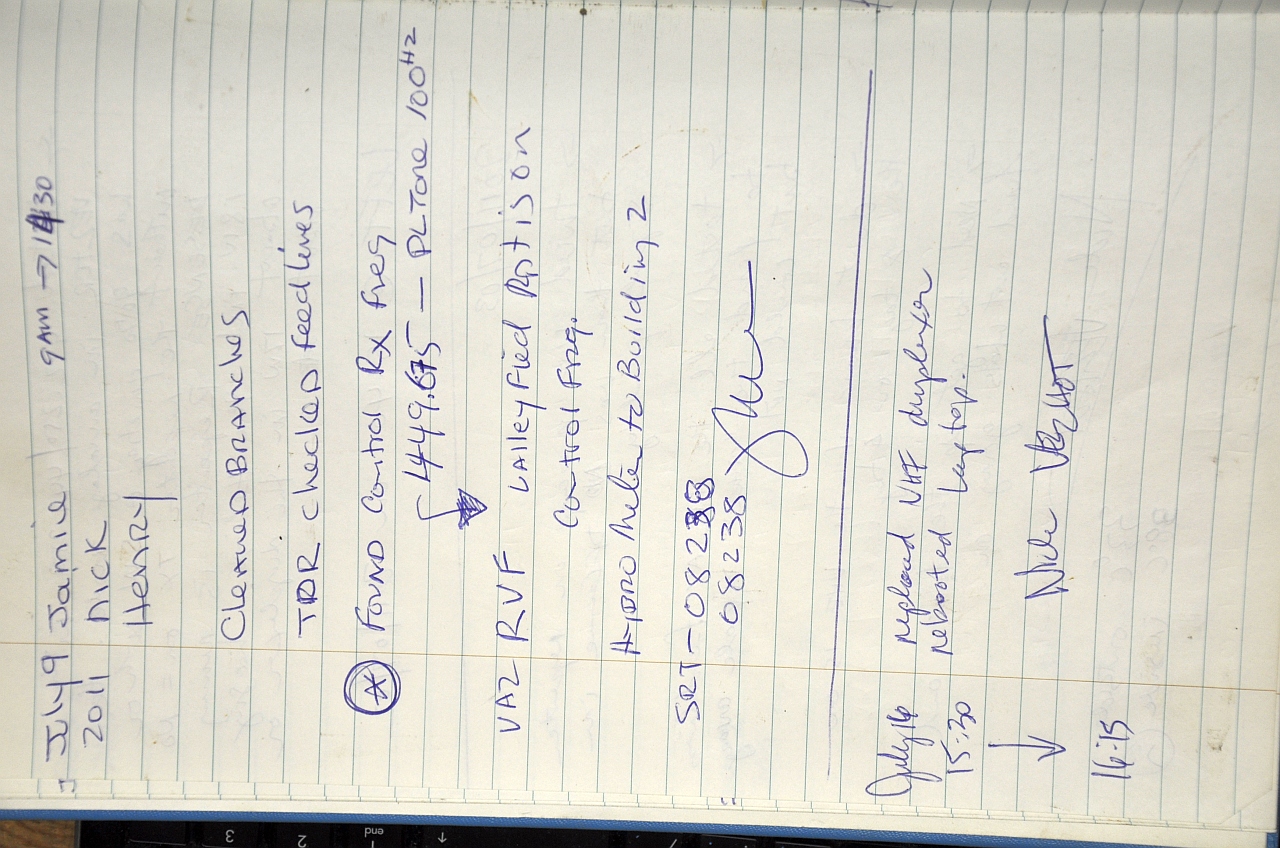 July 9 Jamie 9AM → 30
2011 NICK
HENRY
CLEANED BRANCHES
TDR checked feed lines
* FOUND Control Rx freq
449.675 — PL Tone 100Hz
VA2 RVF VAlleyField Rpt is on
Control Freq.
HYDRO Meter to Building 2
SRT-08288
08238
July 16 replaced VHF duplexer
15:30 rebooted laptop.
↓ Nick
16:15
3
2
end